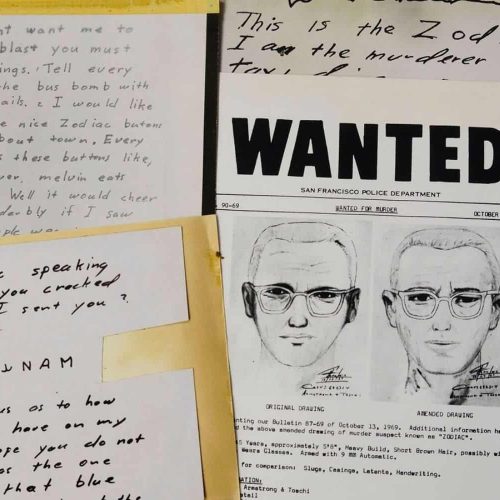 want me to
blast you must
ings. 1 Tell every
the bus bomb with
ails. 2 I would like
e nice Zodiac butons
bout town. Every
s these buttons like,
er, melvin eats
Well it would cheer
derbly if I saw
This is the Zod
I am the murderer
WANTED
SAN FRANCISCO POLICE DEPARTMENT
90-69 WANTED FOR MURDER OCTOBER
ORIGINAL DRAWING AMENDED DRAWING
nting our Bulletin 87-69 of October 13, 1969. Additional information ha
the above amended drawing of murder suspect known as "ZODIAC".
5 Years, approximately 5'8", Heavy Build, Short Brown Hair, possibly wi
Wears Glasses. Armed with 9 MM Automatic.
for comparison: Slugs, Casings, Latents, Handwriting.
Armstrong & Toschi
etail
c speaking
you cracked
I sent you ?
NAM
us as to how
have on my
ope you do not
as the one
that blue